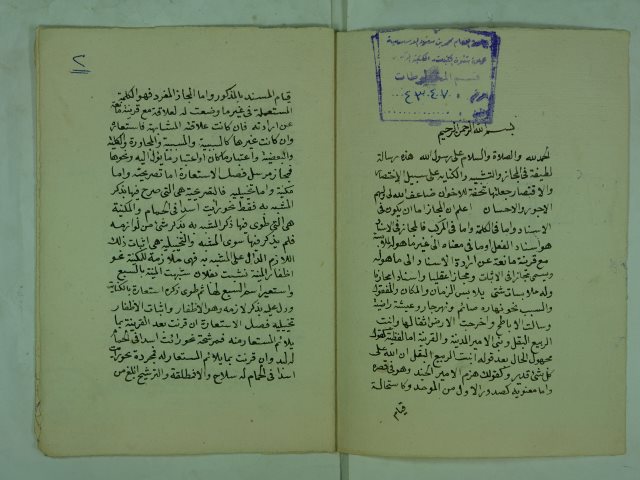 بسم الله الرحمن الرحيم
الحمد لله والصلاة والسلام على رسول الله هذه رسالة
لطيفة في المجاز والتشبيه والكناية على سبيل الاختصار
والاقتصار جعلتها تحفة للاخوان ضاعف الله لي ولهم
الاجور والاحسان اعلم ان المجاز اما ان يكون في
الاسناد واما في الكلمة واما في المركب فالمجاز في الاسناد
هو اسناد الفعل او ما في معناه الى غير ما هو له لملابسة
مع قرينة مانعة عن ارادة الاسناد الى ما هو له
ويسمى مجازا في الاثبات ومجازا عقليا واسنادا مجازيا
وله ملابسات شتى يلابس الزمان والمكان والمفعول
والسبب نحو نهاره صائم ونهر جار وعيشة راضية
وسالت الاباطح واخرجت الارض اثقالها وانبت
الربيع البقل وبنى الامير المدينة والقرينة اما لفظية كقول
مجهول الحال بعد قوله انبت الربيع البقل ان الله على
كل شئ قدير وكقولك هزم الامير الجند وهو في قصره
واما معنوية كصدور الاول من الموحد وكاستحالة
قيام
٢
قيام المسند بالمذكور واما المجاز المفرد فهو الكلمة
المستعملة في غير ما وضعت له لعلاقة مع قرينة مانعة
عن ارادته فان كانت علاقته المشابهة فاستعارة
وان كانت غيرها كالسببية والمسببية والمجاورة والكلية
والبعضية واعتبار ما كان او اعتبار ما يؤل اليه ونحوها
فمجاز مرسل فصل الاستعارة اما تصريحية واما
مكنية واما تخييلية فالتصريحية هي التي صرح فيها بذكر
المشبه به فقط نحو رايت اسدا في الحمام والمكنية
هي التي طوى فيها ذكر المشبه به بذكر شئ من لوازمه
فلم يذكر فيها سوى المشبه والتخييلية هي اثبات ذلك
اللازم الدال على المشبه به فهي ملازمة للمكنية نحو
اظفار المنية نشبت بفلان شبهت المنية بالسبع
واستعير اسم السبع لها ثم طوى ذكره استعارة بالكناية
ودل عليه بذكر لازمه وهو الاظفار واثبات الاظفار
تخييلية فصل الاستعارة ان قرنت بعد القرينة بما
يلائم المستعار منه فمرشحة نحو رايت اسدا في الحمام
له لبد وان قرنت بما يلائم المستعار له فمجردة نحو رايت
اسدا في الحمام له سلاح والا فمطلقة والترشيح ابلغ من